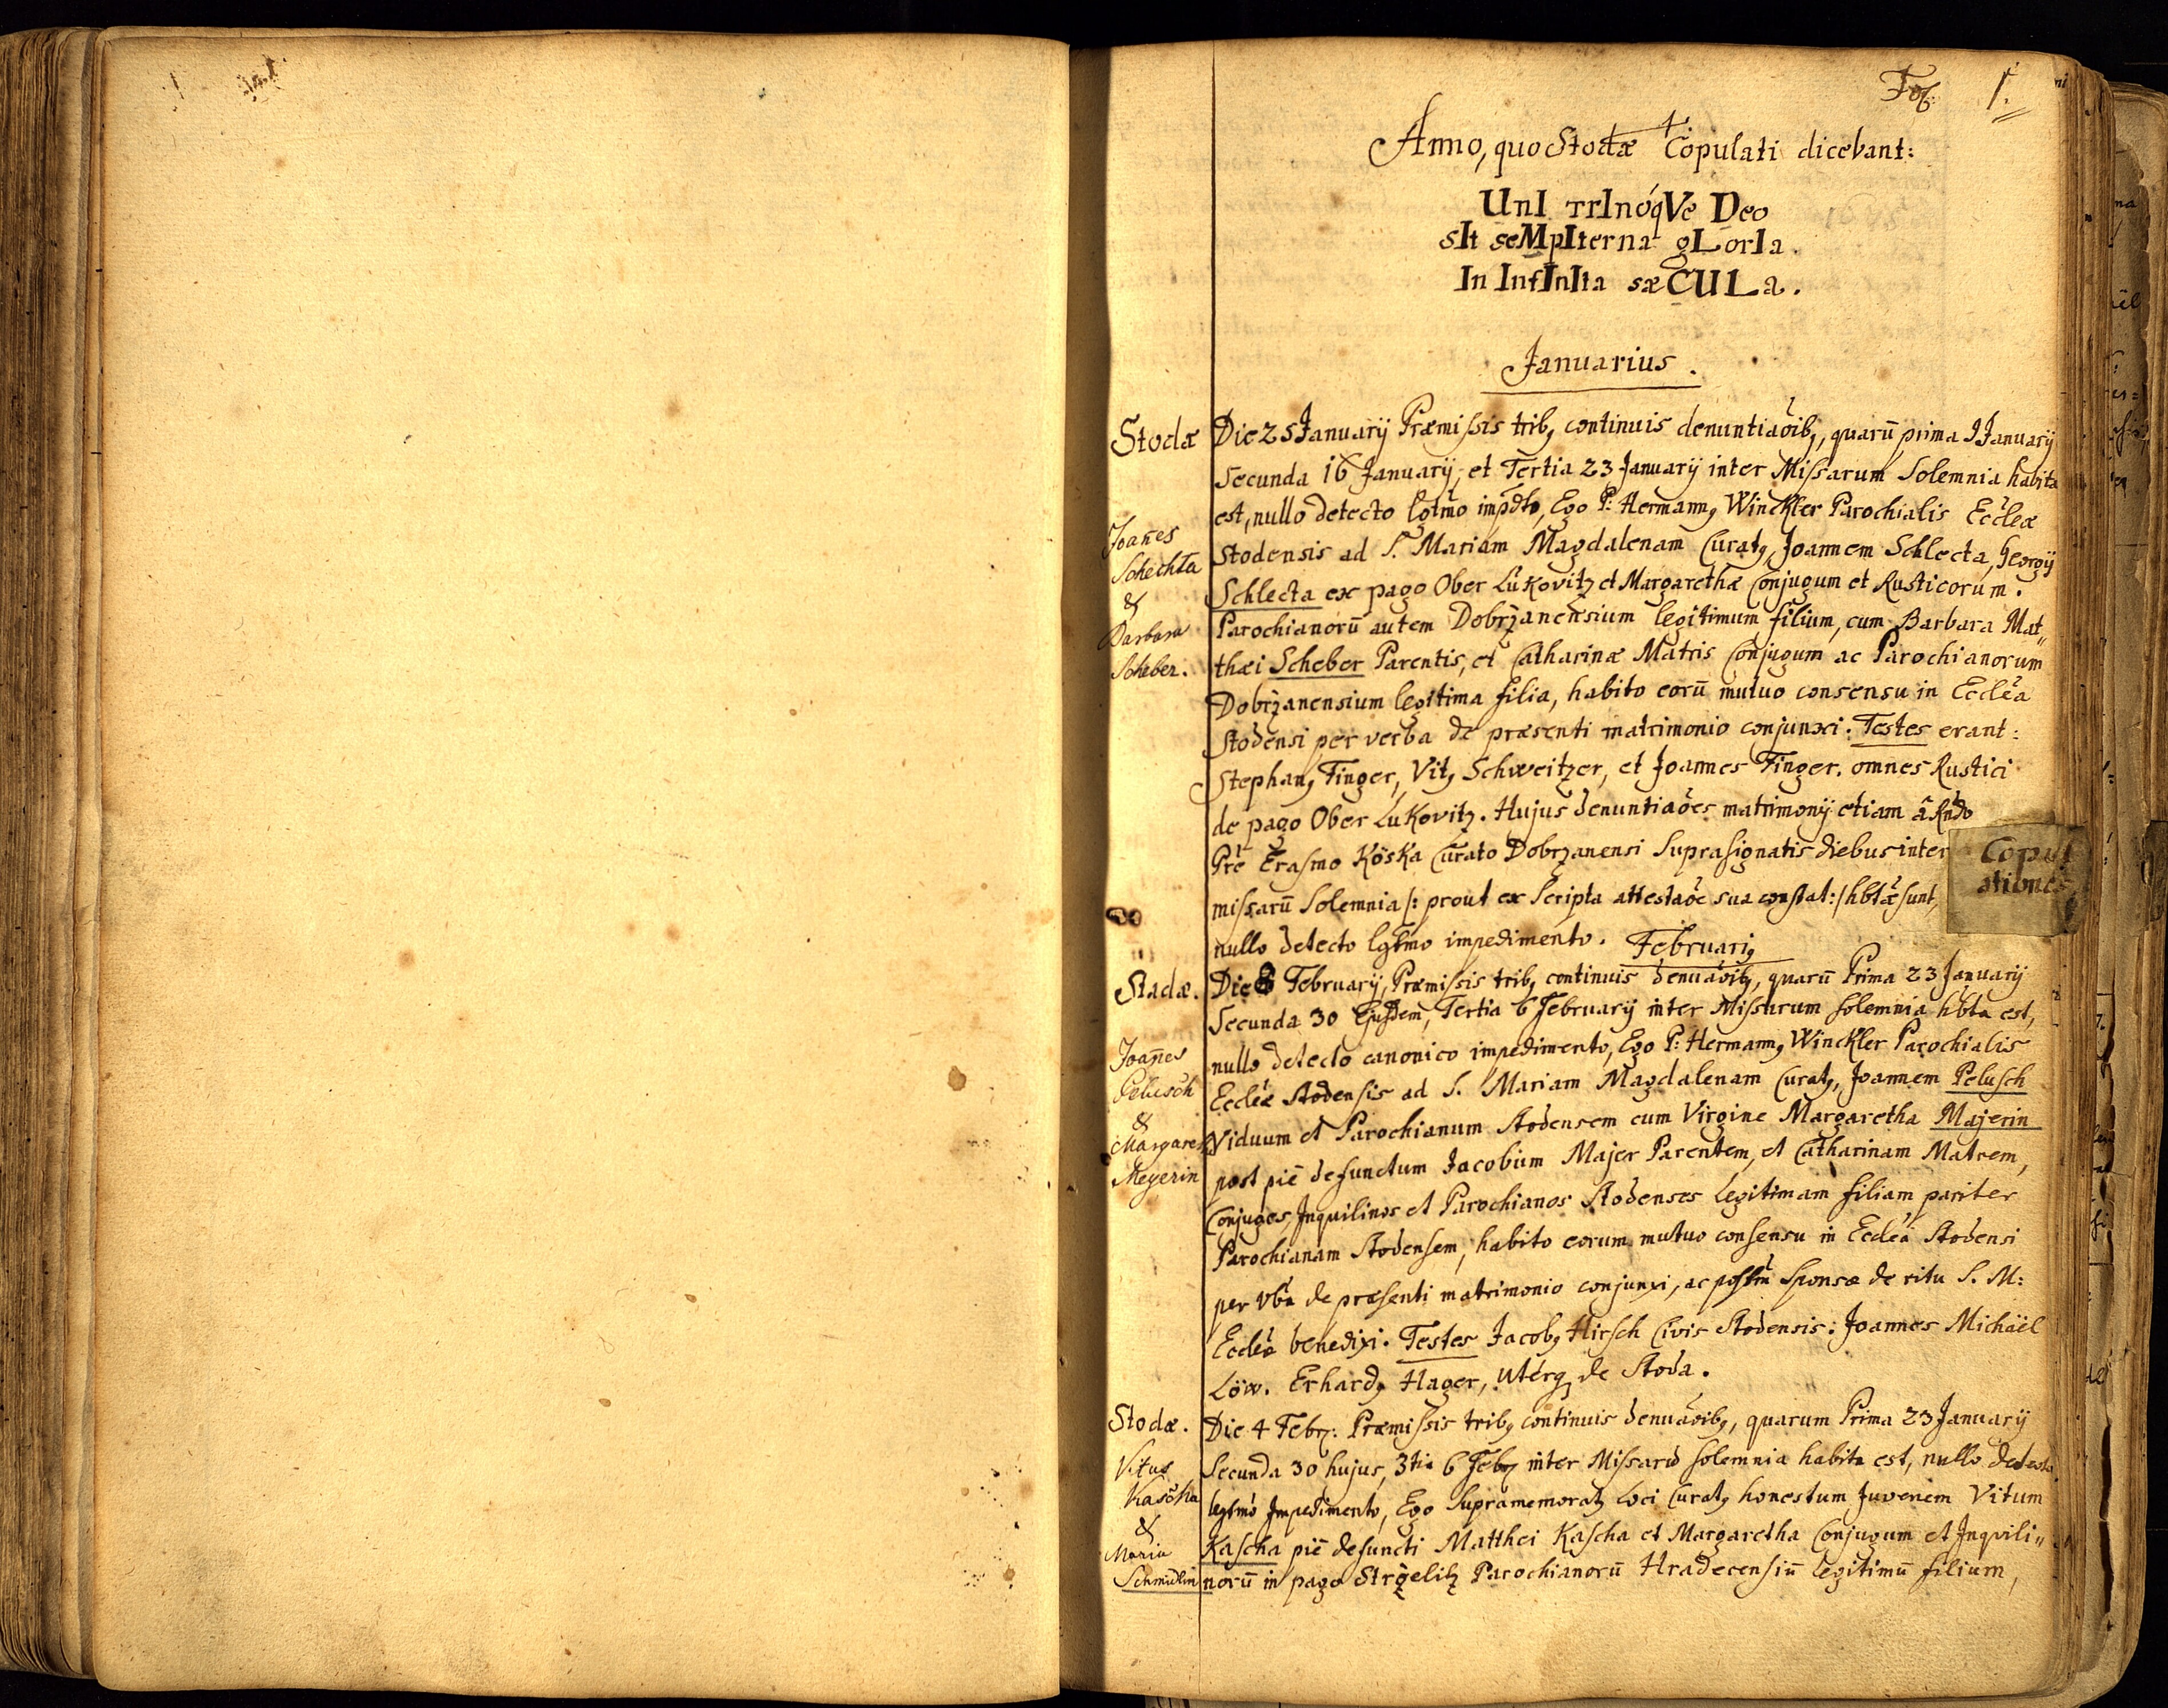 Fol: 1.
Anno, quo Stodæ Copulati dicebant:
UnI TrInóqVe Deo
sIt seMpIterna gLorIa.
In InfInIta sæCULa.
Januarius.
Stodæ
Die 25 Januarij Præmissis trib9 continuis denuntiaõib9, quarũ prima 9 Januarij
Secunda 16 Januarij, et Tertia 23 Januarij inter Missarum Solemnia habita
est, nullo detecto lgtmo impdto, Ego P: Hermann9 Winckler Parochialis Eccleæ
Stodensis ad S. Mariam Magdalenam Curat9, Joannem Schlecta, Georgij
Schlecta ex pago Ober Lukovitz et Margarethæ Conjugum et Rusticorum.
Parochianorũ autem Dobrzanensium legitimum filium, cum Barbara Mat„
thæi Scheber Parentis, et Catharinæ Matris Conjugum ac Parochianorum
Dobrzanensium legitima filia, habito eorũ mutuo consensu in Ecclea
Stodensi per verba de præsenti matrimonio conjunxi. Testes erant:
Stephan9 Finger, Vit9 Schweitzer, et Joannes Finger. omnes Rustici
de pago Ober Lukovitz. Hujus denuntiaões matrimonij etiam à Rndo
Pre Erasmo Köska Curato Dobrzanensi Suprasignatis diebus inter
missarũ Solemnia /: prout ex Scripta attestaõe sua constat :/ hbtæ sunt,
nullo detecto lgtmo impedimento.
Joañes
Schechta
&
Barbara
Scheber.
Copul
ationes
Februari9
Stadæ.
Die 8 Februarij, Præmissis trib9 continuis denuaõib9, quarũ Prima 23 Januarij
Secunda 30 Ejusdem, Tertia 6 Februarij inter Missarum solemnia hbta est,
nullo detecto canonico impedimento, Ego P: Hermann9 Winckler Parochialis
Eccleæ Stodensis ad S. Mariam Magdalenam Curat9, Joannem Pelusch
Viduum et Parochianum Stodensem cum Virgine Margaretha Majerin
post piè defunctum Jacobum Majer Parentem, et Catharinam Matrem,
Conjuges Inquilinos et Parochianos Stodenses Legitimam filiam pariter
Parochianam Stodensem, habito eorum mutuo consensu in Ecclea Stodensi
per vba de præsenti matrimonio conjunxi, ac postm Sponsæ de ritu S. M:
Eccleæ benedixi. Testes Jacob9 Hirsch Civis Stodensis: Joannes Michaël
Löw. Erhard9 Hager, utérq de Stoda.
Joañes
Pelusch
&
Margaretha
Meyerin
Stodæ.
Die 4 Febr: Præmissis trib9 continuis denuaõib9, quarum Prima 23 Januarij
Secunda 30 hujus, 3tia 6 Febr inter Missarũ solemnia habita est, nullo detecto
legtmo Impedimento, Ego Supramemorat9 Loci Curat9 honestum Juvenem Vitum
Kascha piè defuncti Matthei Kascha et Margaretha Conjugum et Inquili„
norũ in pago Strzelitz Parochianorũ Hradecensiũ legitimũ filium,
Vitus
Kascha
&
Maria
Schmidlin